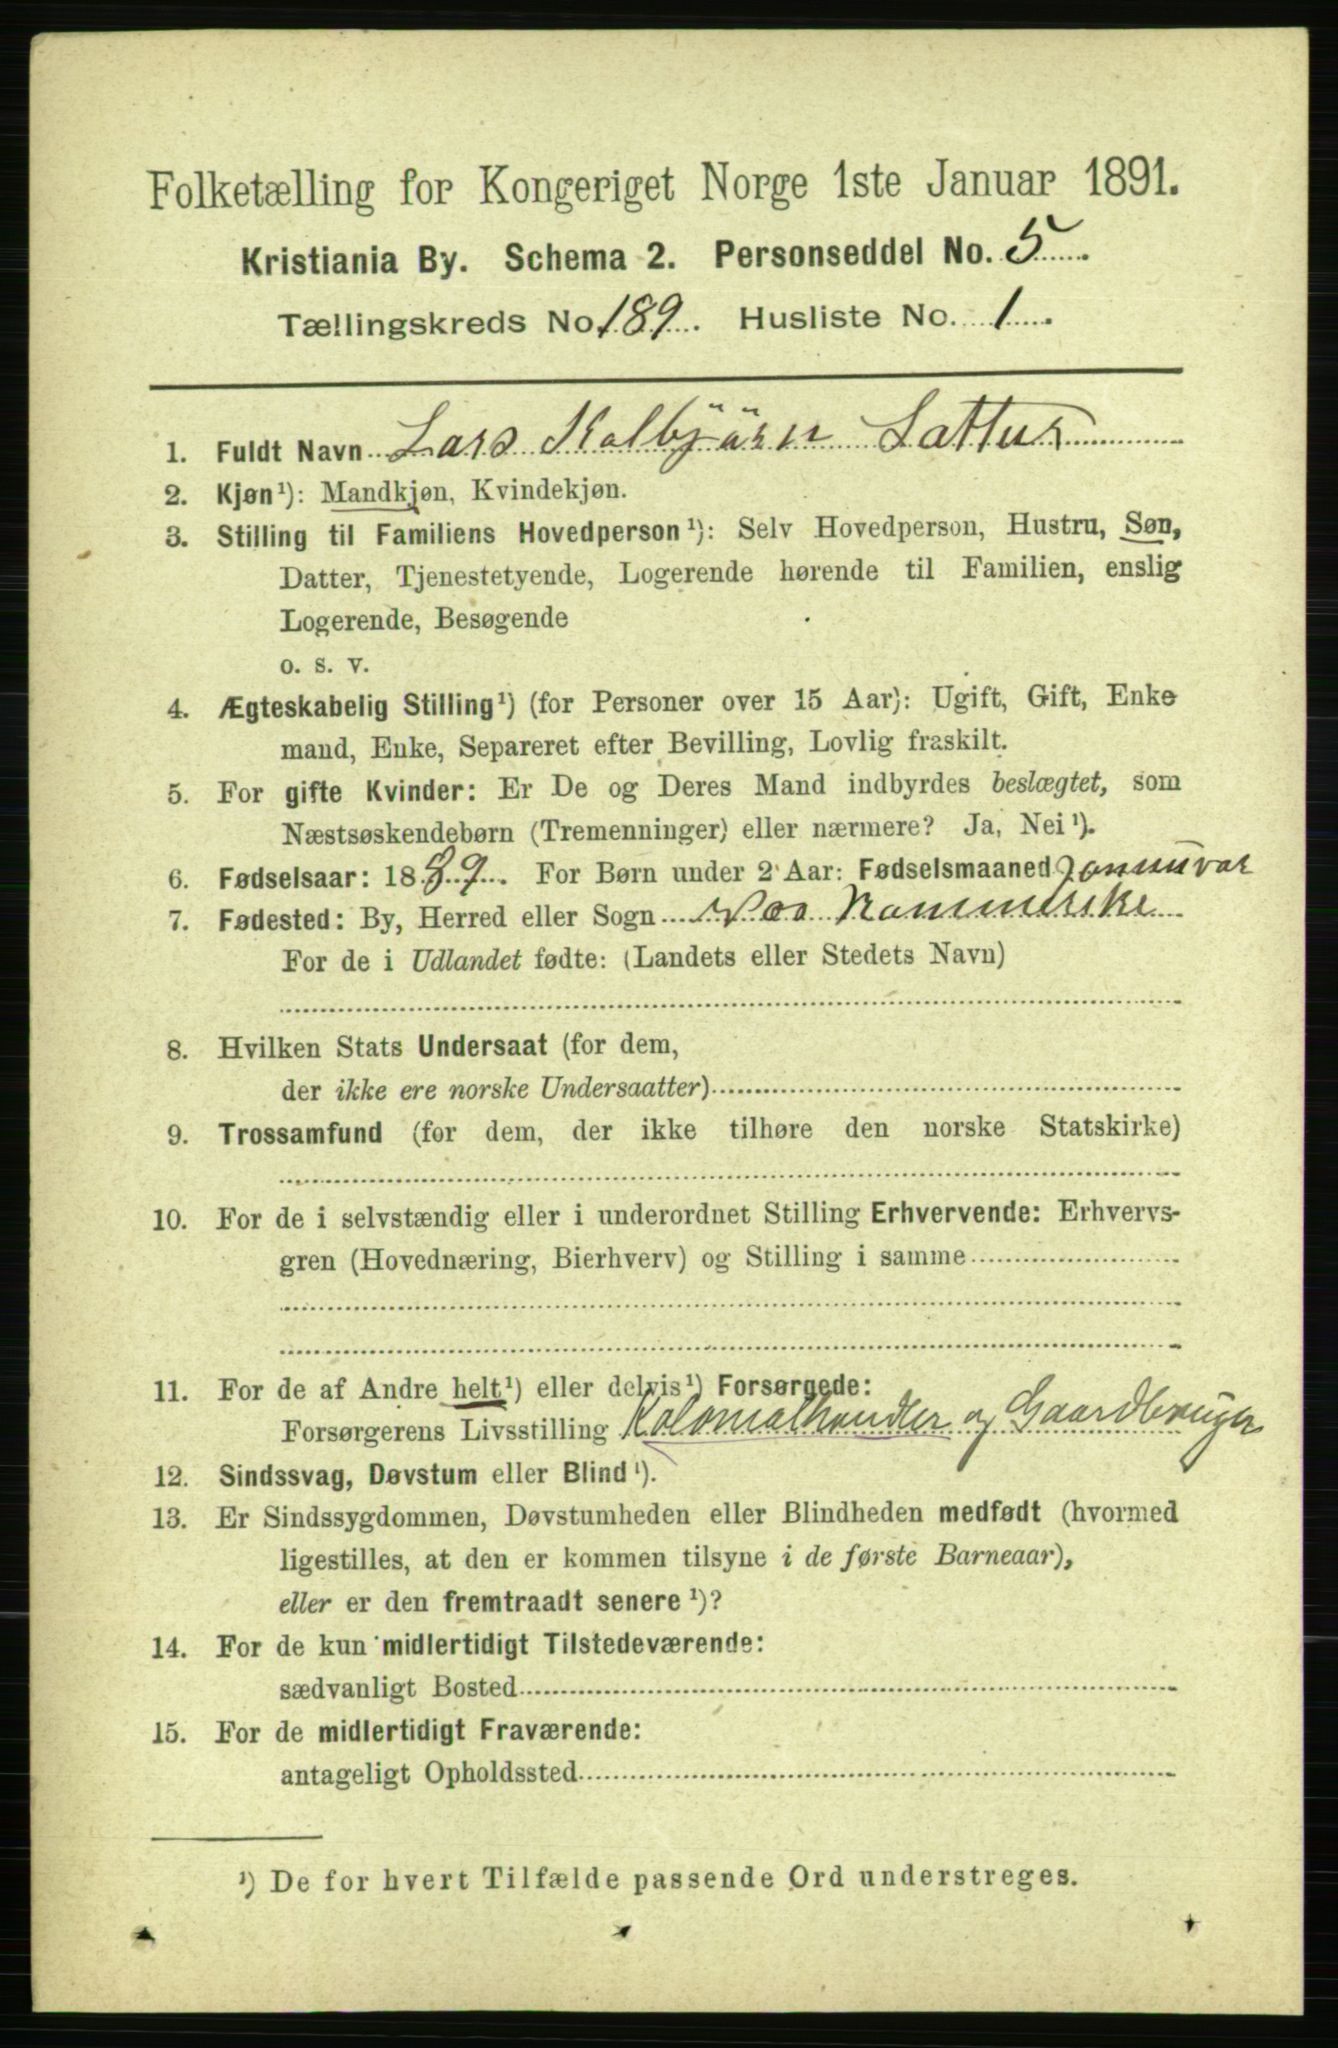 Folketælling for Kongeriget Norge 1ste Januar 1891.
Kristiania By. Schema 2. Personseddel No. 5
Tællingskreds No. 189. Husliste No. 1
1. Fuldt Navn Lars Kolbjörn
2. Kjøn¹): Mandkjøn, Kvindekjøn.
3. Stilling til Familiens Hovedperson¹): Selv Hovedperson, Hustru, Søn,
Datter, Tjenestetyende, Logerende hørende til Familien, enslig
Logerende, Besøgende
o. s. v.
4. Ægteskabelig Stilling¹) (for Personer over 15 Aar): Ugift, Gift, Enke
mand, Enke, Separeret efter Bevilling, Lovlig fraskilt.
5. For gifte Kvinder: Er De og Deres Mand indbyrdes beslægtet, som
Næstsøskendebørn (Tremenninger) eller nærmere? Ja, Nei¹).
6. Fødselsaar: 1889. For Børn under 2 Aar: Fødselsmaaned Januuar
7. Fødested: By, Herred eller Sogn
For de i Udlandet fødte: (Landets eller Stedets Navn)
8. Hvilken Stats Undersaat (for dem,
der ikke ere norske Undersaatter)
9. Trossamfund (for dem, der ikke tilhøre den norske Statskirke)
10. For de i selvstændig eller i underordnet Stilling Erhvervende: Erhvervs-
gren (Hovednæring, Bierhverv) og Stilling i samme
11. For de af Andre helt¹) eller delvis¹) Forsørgede:
Forsørgerens Livsstilling Kolonialhandler og Gaardbruger
12. Sindssvag, Døvstum eller Blind¹).
13. Er Sindssygdommen, Døvstumheden eller Blindheden medfødt (hvormed
ligestilles, at den er kommen tilsyne i de første Barneaar),
eller er den fremtraadt senere¹)?
14. For de kun midlertidigt Tilstedeværende:
sædvanligt Bosted
15. For de midlertidigt Fraværende:
antageligt Opholdssted
¹) De for hvert Tilfælde passende Ord understreges.